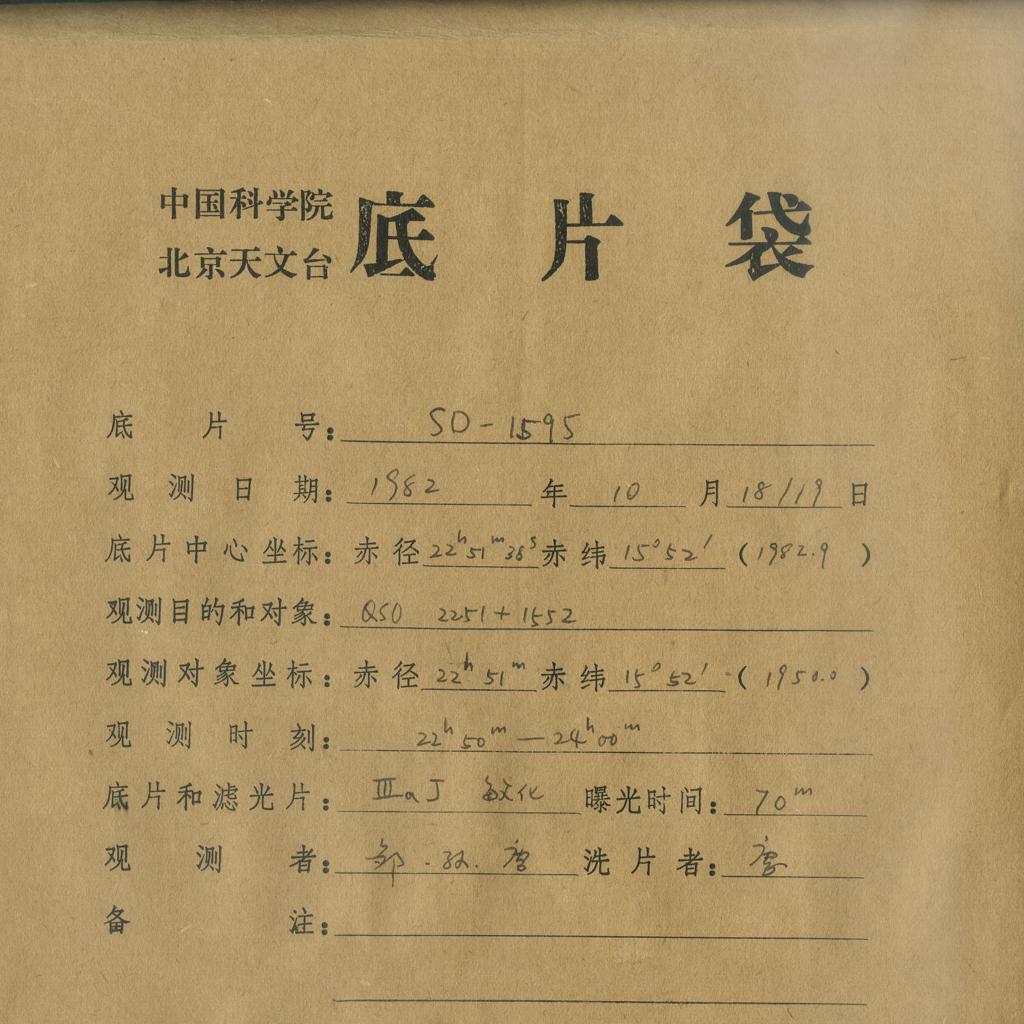 中国科学院
北京天文台
底片袋
底片号：SO-1595
观测日期：1982年10月18/19日
底片中心坐标：赤径22ʰ51ᵐ38ˢ赤纬15°52′（1982.9）
观测目的和对象：QSO 2251+1552
观测对象坐标：赤径22ʰ51ᵐ赤纬15°52′（1950.0）
观测时刻：22ʰ50ᵐ—24ʰ00ᵐ
底片和滤光片：ⅢaJ 敏化 曝光时间：70ᵐ
观测者：邹.孙. 洗片者：
备注：